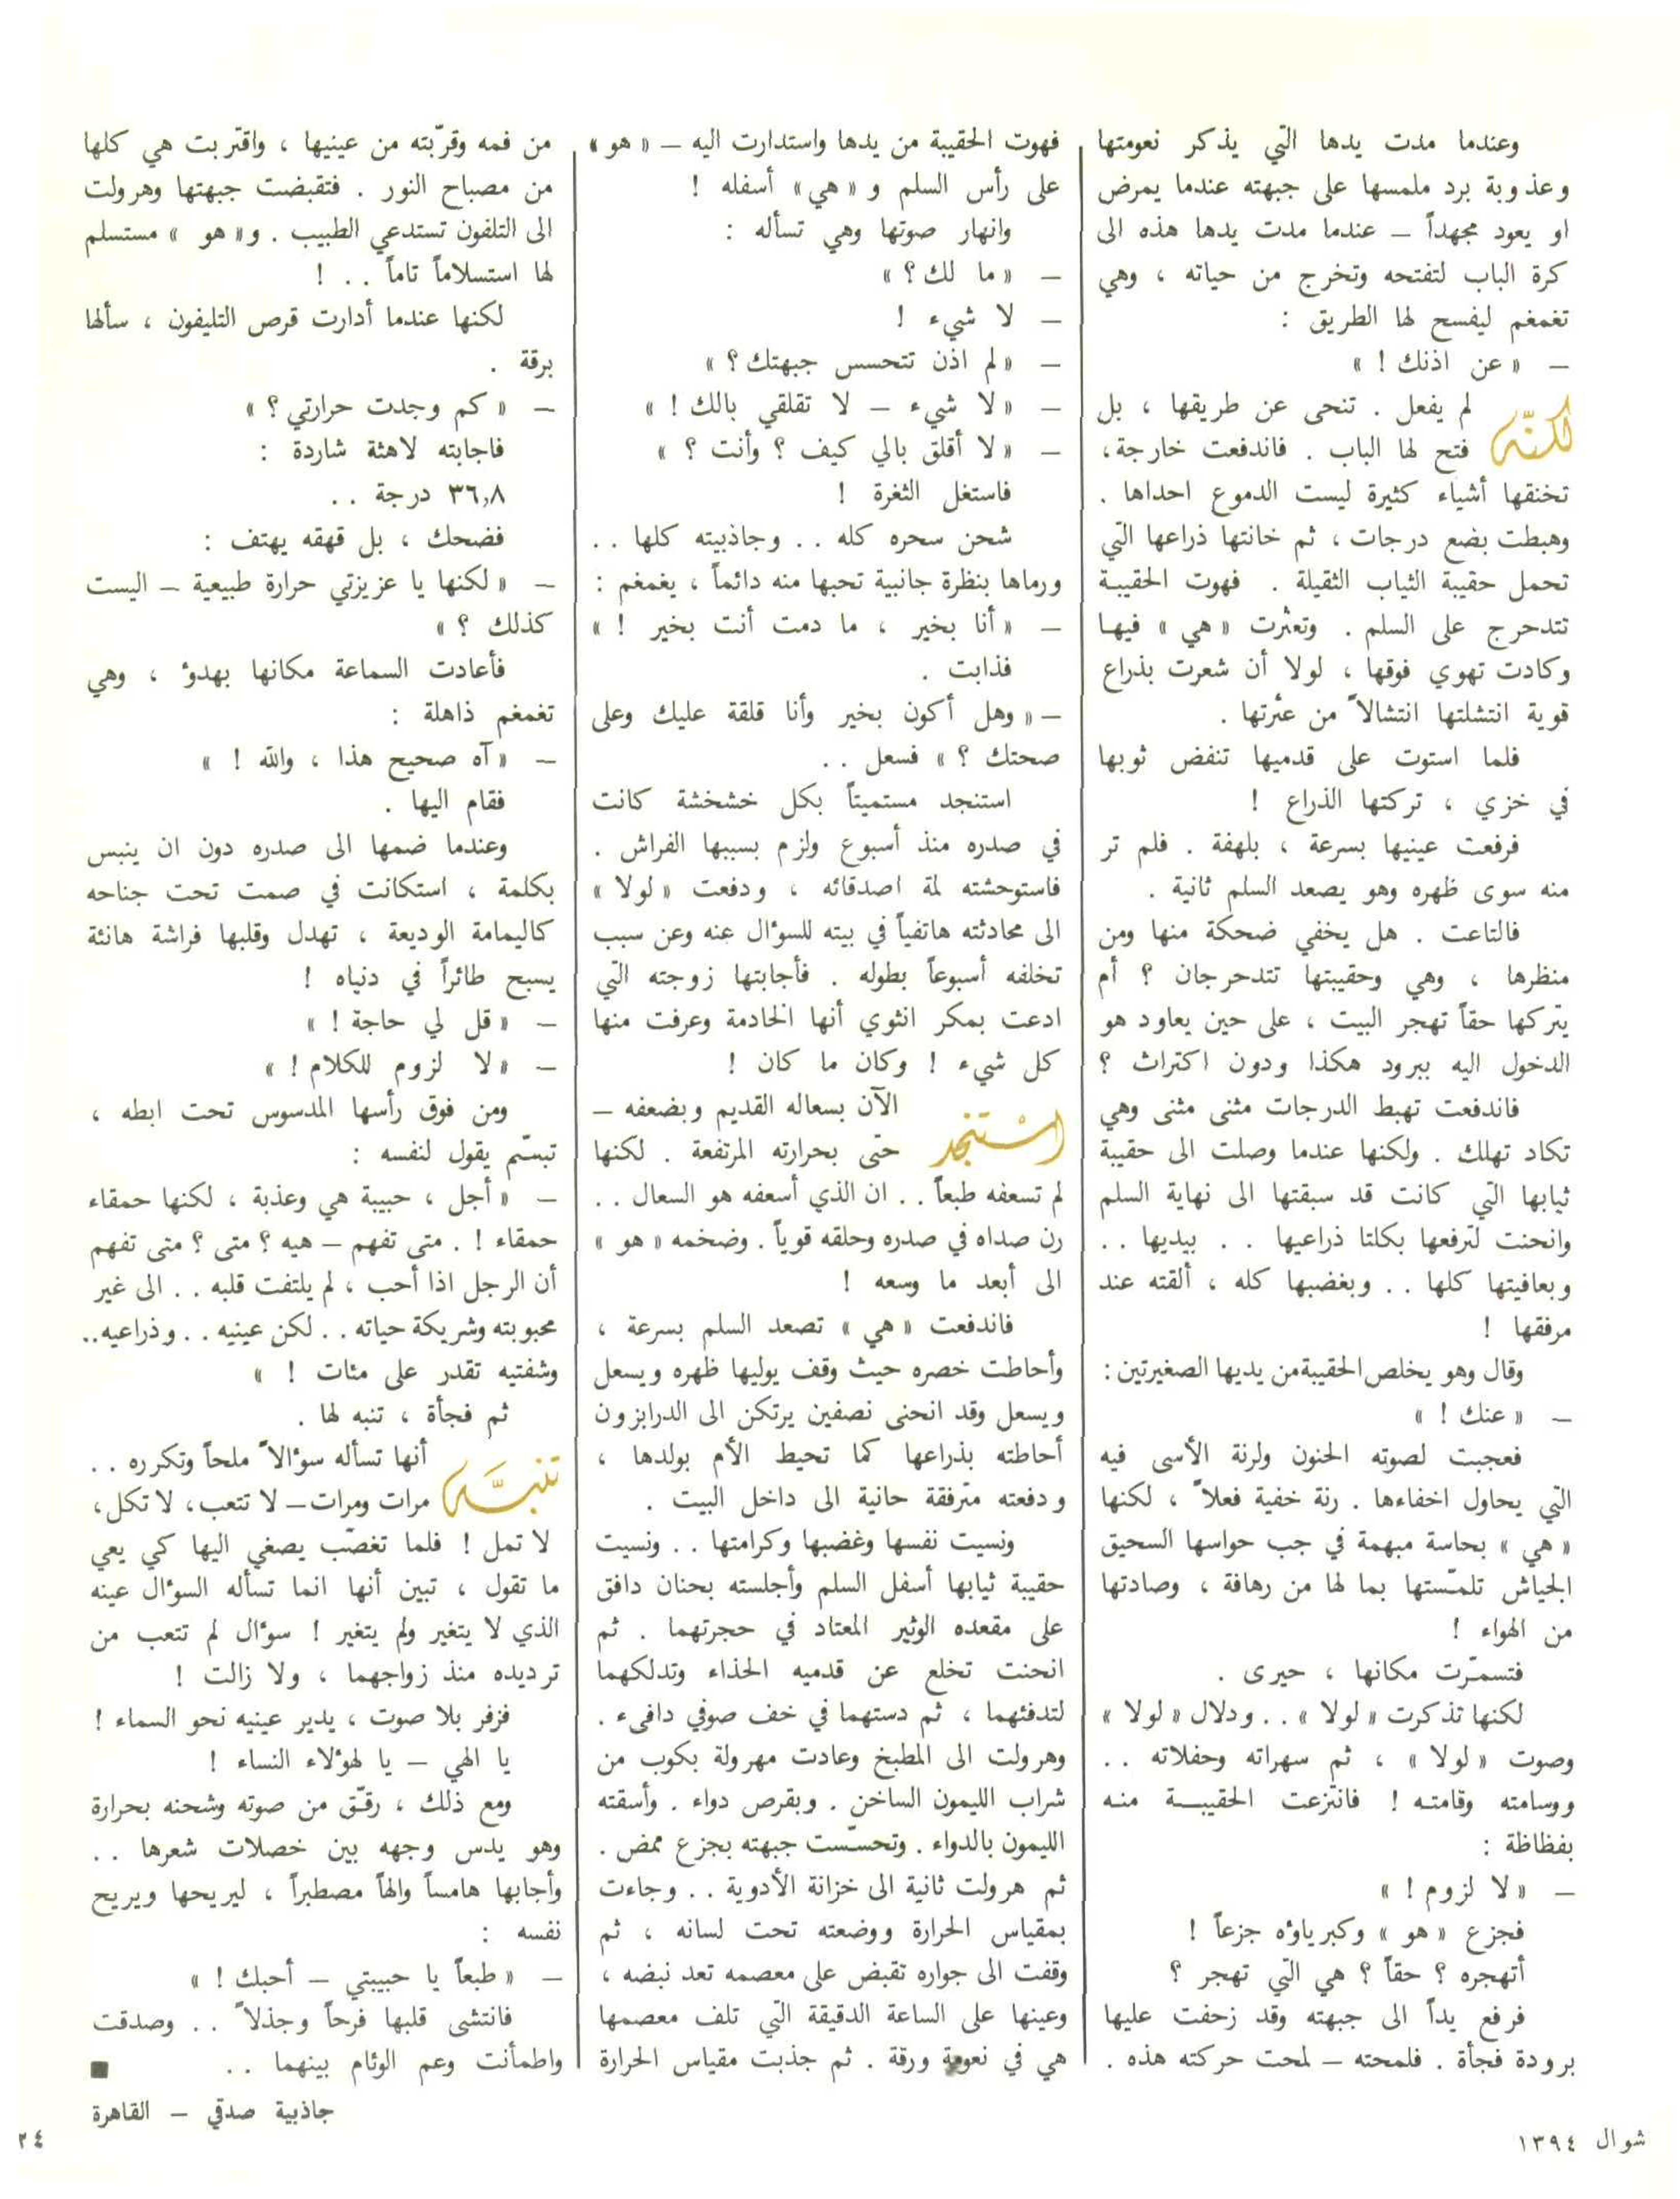 وعندما مدت يدها التي يذكر نعومتها
وعذوبة برد ملمسها على جبهته عندما يمرض
او يعود مجهداً – عندما مدت يدها هذه الى
كرة الباب لتفتحه وتخرج من حياته ، وهي
تغمغم ليفسح لها الطريق :
– « عن اذنك ! »
لكنّه لم يفعل . تنحى عن طريقها ، بل
فتح لها الباب . فاندفعت خارجة ،
تخنقها أشياء كثيرة ليست الدموع احداها .
وهبطت بضع درجات ، ثم خانتها ذراعها التي
تحمل حقيبة الثياب الثقيلة . فهوت الحقيبة
تتدحرج على السلم . وتعثرت « هي » فيها
وكادت تهوي فوقها ، لولا أن شعرت بذراع
قوية انتشلتها انتشالاً من عثرتها .
فلما استوت على قدميها تنفض ثوبها
في خزي ، تركتها الذراع !
فرفعت عينيها بسرعة ، بلهفة . فلم تر
منه سوى ظهره وهو يصعد السلم ثانية .
فالتاعت . هل يخفي ضحكة منها ومن
منظرها ، وهي وحقيبتها تتدحرجان ؟ أم
يتركها حقاً تهجر البيت ، على حين يعاود هو
الدخول اليه ببرود هكذا ودون اكتراث ؟
فاندفعت تهبط الدرجات مثنى مثنى وهي
تكاد تهلك . ولكنها عندما وصلت الى حقيبة
ثيابها التي كانت قد سبقتها الى نهاية السلم
وانحنت لترفعها بكلتا ذراعيها . . بيديها . .
وبعافيتها كلها . . وبغضبها كله ، ألقته عند
مرفقها !
وقال وهو يخلص الحقيبة من يديها الصغيرتين :
– « عنك ! »
فعجبت لصوته الحنون ولرنة الأسى فيه
التي يحاول اخفاءها . رنة خفية فعلاً ، لكنها
« هي » بحاسة مبهمة في جب حواسها السحيق
الجياش تلمّستها بما لها من رهافة ، وصادتها
من الهواء !
فتسمّرت مكانها ، حيرى .
لكنها تذكرت « لولا » . . ودلال « لولا »
وصوت « لولا » ، ثم سهراته وحفلاته . .
ووسامته وقامته ! فانتزعت الحقيبة منه
بفظاظة :
– « لا لزوم ! »
فجزع « هو » وكبرياؤه جزعاً !
أتهجره ؟ حقاً ؟ هي التي تهجر ؟
فرفع يداً الى جبهته وقد زحفت عليها
برودة فجأة . فلمحته – لمحت حركته هذه .
فهوت الحقيبة من يدها واستدارت اليه – « هو »
على رأس السلم و « هي » أسفله !
وانهار صوتها وهي تسأله :
– « ما لك ؟ »
– لا شيء !
– « لم اذن تتحسس جبهتك ؟ »
– « لا شيء – لا تقلقي بالك ! »
– « لا أقلق بالي كيف ؟ وأنت ؟ »
فاستغل الثغرة !
شحن سحره كله . . وجاذبيته كلها . .
ورماها بنظرة جانبية تحبها منه دائماً ، يغمغم :
– « أنا بخير ، ما دمت أنت بخير ! »
فذابت .
– « وهل أكون بخير وأنا قلقة عليك وعلى
صحتك ؟ » فسعل . .
استنجد مستميتاً بكل خشخشة كانت
في صدره منذ أسبوع ولزم بسببها الفراش .
فاستوحشته لمة اصدقائه ، ودفعت « لولا »
الى محادثته هاتفياً في بيته للسؤال عنه وعن سبب
تخلفه أسبوعاً بطوله . فأجابتها زوجته التي
ادعت بمكر انثوي أنها الخادمة وعرفت منها
كل شيء ! وكان ما كان !
استنجد الآن بسعاله القديم وبضعفه –
حتى بحرارته المرتفعة . لكنها
لم تسعفه طبعاً . . ان الذي أسعفه هو السعال . .
رن صداه في صدره وحلقه قوياً . وضخمه « هو »
الى أبعد ما وسعه !
فاندفعت « هي » تصعد السلم بسرعة ،
وأحاطت خصره حيث وقف يوليها ظهره ويسعل
ويسعل وقد انحنى نصفين يرتكن الى الدرابزون
أحاطته بذراعها كما تحيط الأم بولدها ،
ودفعته مترفقة حانية الى داخل البيت .
ونسيت نفسها وغضبها وكرامتها . . ونسيت
حقيبة ثيابها أسفل السلم وأجلسته بحنان دافق
على مقعده الوثير المعتاد في حجرتهما . ثم
انحنت تخلع عن قدميه الحذاء وتدلكهما
لتدفئهما ، ثم دستهما في خف صوفي دافىء .
وهرولت الى المطبخ وعادت مهرولة بكوب من
شراب الليمون الساخن . وبقرص دواء . وأسقته
الليمون بالدواء . وتحسّست جبهته بجزع ممض .
ثم هرولت ثانية الى خزانة الأدوية . . وجاءت
بمقياس الحرارة ووضعته تحت لسانه ، ثم
وقفت الى جواره تقبض على معصمه تعد نبضه ،
وعينها على الساعة الدقيقة التي تلف معصمها
هي في نعومة ورقة . ثم جذبت مقياس الحرارة
من فمه وقرّبته من عينيها ، واقتربت هي كلها
من مصباح النور . فتقبضت جبهتها وهرولت
الى التلفون تستدعي الطبيب . و« هو » مستسلم
لها استسلاماً تاماً . . !
لكنها عندما أدارت قرص التليفون ، سألها
برقة .
– « كم وجدت حرارتي ؟ »
فاجابته لاهثة شاردة :
٣٦,٨ درجة . .
فضحك ، بل قهقه يهتف :
– « لكنها يا عزيزتي حرارة طبيعية – اليست
كذلك ؟ »
فأعادت السماعة مكانها بهدؤ ، وهي
تغمغم ذاهلة :
– « آه صحيح هذا ، والله ! »
فقام اليها .
وعندما ضمها الى صدره دون ان ينبس
بكلمة ، استكانت في صمت تحت جناحه
كاليمامة الوديعة ، تهدل وقلبها فراشة هانئة
يسبح طائراً في دنياه !
– « قل لي حاجة ! »
– « لا لزوم للكلام ! »
ومن فوق رأسها المدسوس تحت ابطه ،
تبسّم يقول لنفسه :
– « أجل ، حبيبة هي وعذبة ، لكنها حمقاء
حمقاء ! . متى تفهم – هيه ؟ متى ؟ متى تفهم
أن الرجل اذا أحب ، لم يلتفت قلبه . . الى غير
محبوبته وشريكة حياته . . لكن عينيه . . وذراعيه . .
وشفتيه تقدر على مئات ! »
ثم فجأة ، تنبه لها .
تنبّه أنها تسأله سؤالاً ملحاً وتكرره . .
مرات ومرات – لا تتعب ، لا تكل ،
لا تمل ! فلما تغصّب يصغي اليها كي يعي
ما تقول ، تبين أنها انما تسأله السؤال عينه
الذي لا يتغير ولم يتغير ! سؤال لم تتعب من
ترديده منذ زواجهما ، ولا زالت !
فزفر بلا صوت ، يدير عينيه نحو السماء !
يا الهي – يا لهؤلاء النساء !
ومع ذلك ، رقّق من صوته وشحنه بحرارة
وهو يدس وجهه بين خصلات شعرها . .
وأجابها هامساً والهاً مصطبراً ، ليريحها ويريح
نفسه :
– « طبعاً يا حبيبتي – أحبك ! »
فانتشى قلبها فرحاً وجذلاً . . وصدقت
واطمأنت وعم الوئام بينهما . . ■
جاذبية صدقي – القاهرة
شوال ١٣٩٤
٢٤